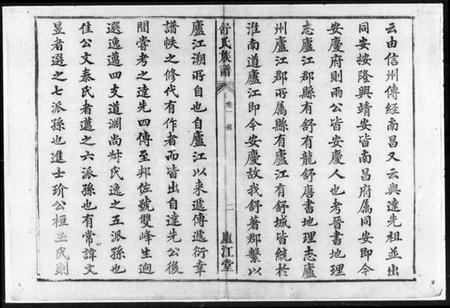 云由信州傳經南昌又云與達先祖並出
同安按隆興靖安皆南昌府屬同安即今
安慶府則兩公皆安慶人也考晉書地理
志廬江郡縣有舒有龍舒唐書地理志廬
州廬江郡所屬縣有廬江有舒城皆統於
淮南道廬江即今安慶故我舒著郡繫以
舒氏族譜
卷一 敘
二
廬江堂
廬江溯所自也自廬江以來遞傳遞衍幸
譜帙之修代有作者而皆出自達先公後
間嘗考之達先四傳至邦佐號雙峰生迥
選逸邁四支道淵尚
氏逸之五派孫也
佳公文泰氏者邁之六派孫也有常諱文
昱者選之七派孫也進士玠公桓
民則